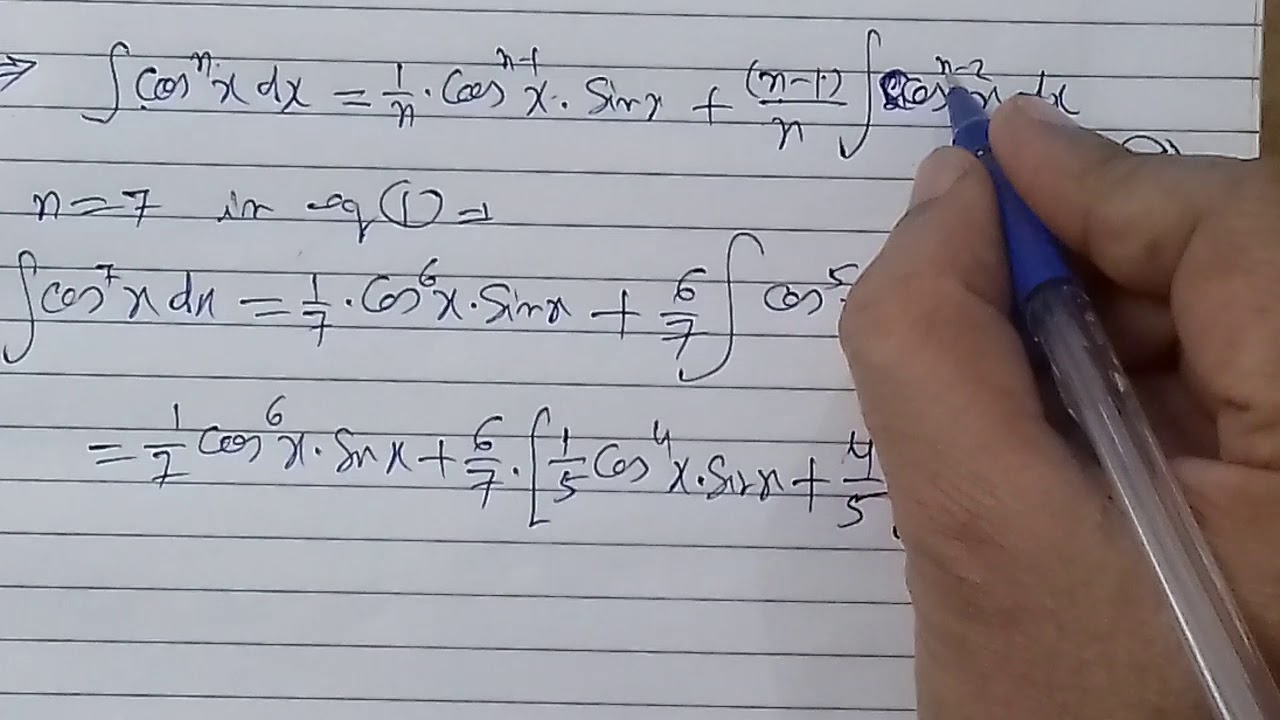 ⇒ ∫ cosⁿx dx = 1/n · cosⁿ⁻¹x · sinx + (n-1)/n ∫ cosⁿ⁻²x dx
n = 7 in eq (1) ⇒
∫ cos⁷x dx = 1/7 · cos⁶x · sinx + 6/7 ∫ cos⁵
= 1/7 cos⁶x · Snx + 6/7 · [ 1/5 cos⁴x · sinx + 4/5